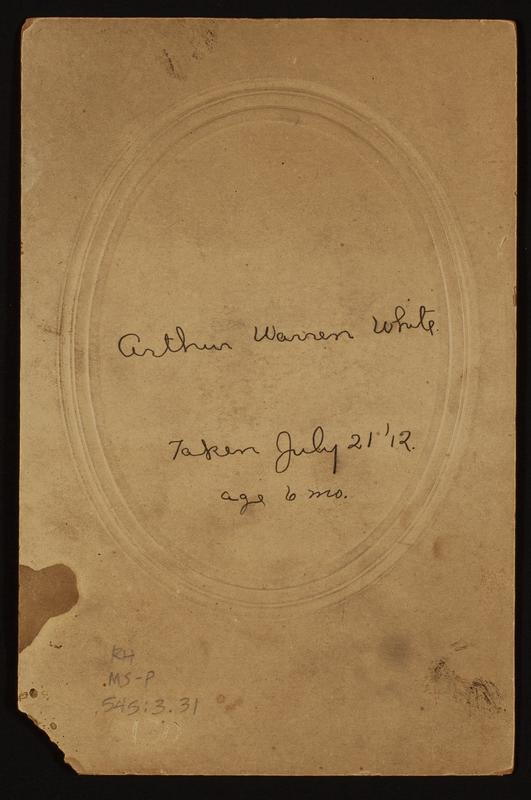 Arthur Warren White.
Taken July 21 '12.
age 6 mo.
RH
MS-P
545:3.31